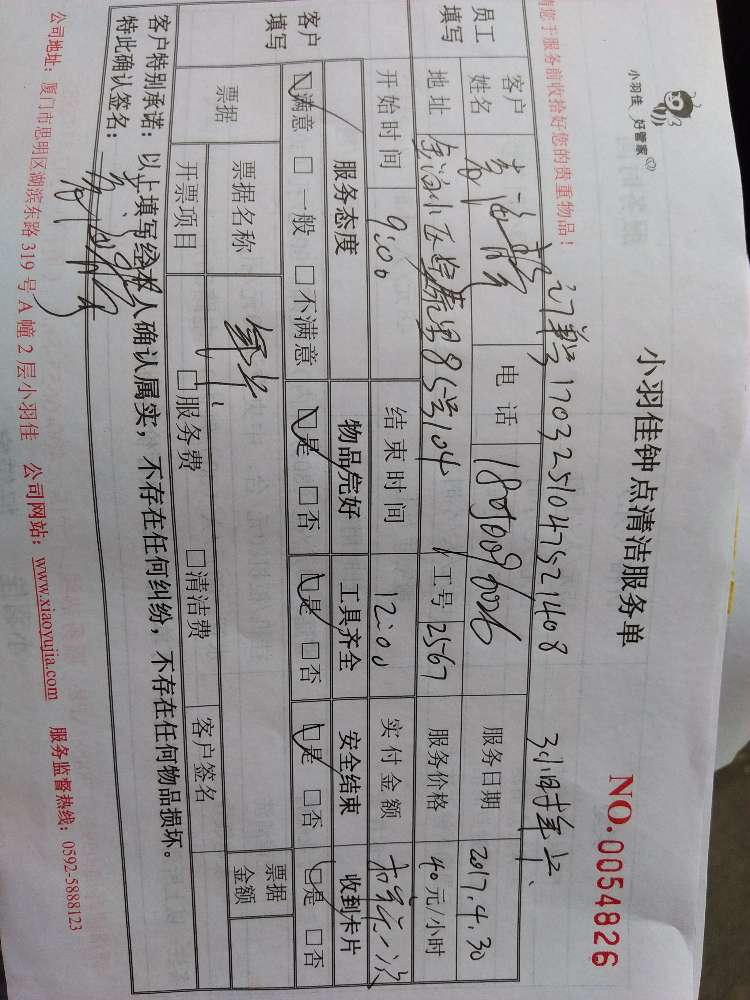 小羽佳 好管家
小羽佳钟点清洁服务单
NO.0054826
您于服务前收拾好您的贵重物品！
订单号1703251047521408 3小时单上
员工填写
客户姓名 电话 服务日期 2017.4.30
地址 8号104 工号 2567 服务价格 40元/小时
开始时间 9:00 结束时间 12:00 实付金额
客户填写
服务态度 物品完好 工具齐全 安全结束 收到卡片
☑满意 □一般 □不满意 ☑是 □否 ☑是 □否 ☑是 □否 ☑是 □否
票据 票据名称 票据金额
开票项目 □服务费 □清洁费 客户签名
客户特别承诺：以上填写经本人确认属实，不存在任何纠纷，不存在任何物品损坏。
特此确认签名：
公司地址：厦门市思明区湖滨东路319号A幢2层小羽佳 公司网站：www.xiaoyujia.com 服务监督热线：0592-5888123